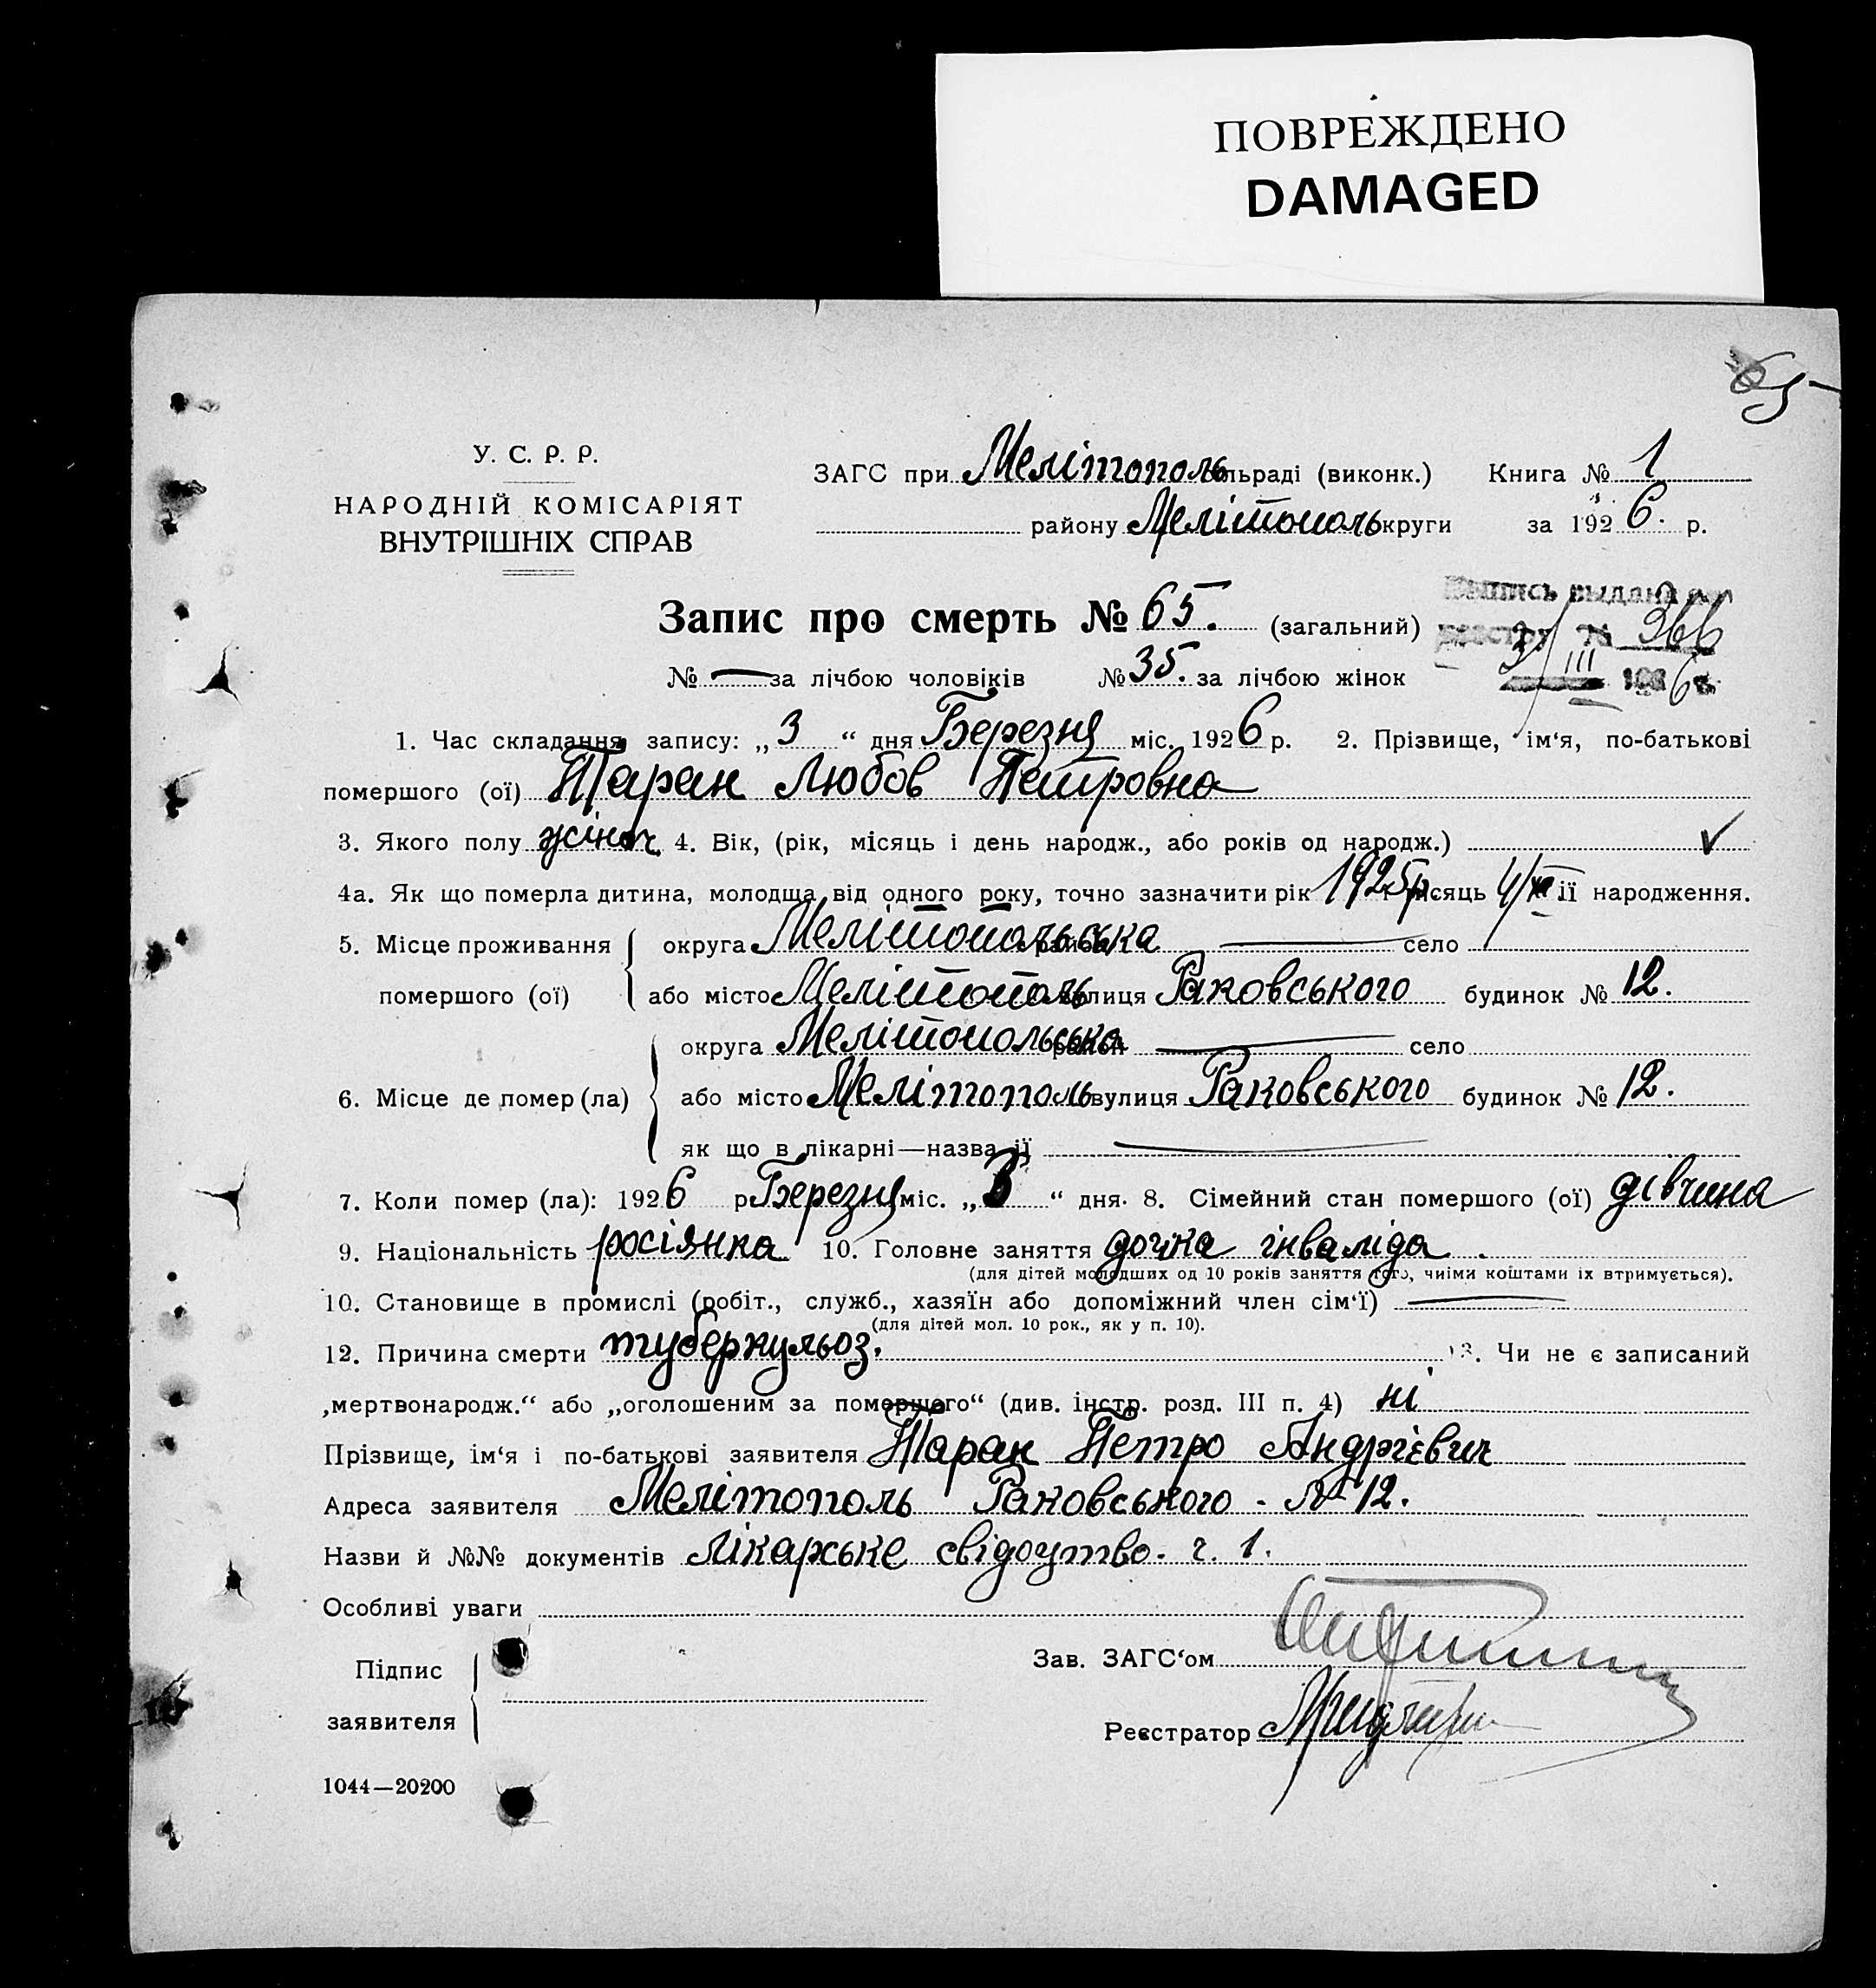 ПОВРЕЖДЕНО
DAMAGED
65
У. С. Р. Р.
НАРОДНІЙ КОМІСАРІЯТ
ВНУТРІШНІХ СПРАВ
ЗАГС при Мелітополь льраді (виконк.) Книга № 1
району Мелітополь круги за 1926. р.
Запис про смерть № 65. (загальний)
выдана 366
№ — за лічбою чоловіків № 35. за лічбою жінок
3/III 1926 г.
1. Час складання запису: „3“ дня Березня міс. 1926 р. 2. Прізвище, ім‘я, по-батькові
помершого (ої) Таран Любов Петровна
3. Якого полу жіноч. 4. Вік, (рік, місяць і день народж., або років од народж.) ✓
4а. Як що померла дитина, молодща від одного року, точно зазначити рік 1925р. місяць 4/ її народження.
5. Місце проживання помершого (ої) округа Мелітопольська район — село
або місто Мелітополь вулиця Раковського будинок № 12.
6. Місце де помер (ла) округа Мелітопольська район — село
або місто Мелітополь вулиця Раковського будинок № 12.
як що в лікарні—назва її —
7. Коли помер (ла): 1926 р Березня міс. „3“ дня. 8. Сімейний стан помершого (ої) дівчина
9. Національність росіянка 10. Головне заняття дочка інваліда.
(для дітей молодших од 10 років заняття того, чиїми коштами їх втримується).
10. Становище в промислі (робіт., служб., хазяїн або допоміжний член сім‘ї) —
(для дітей мол. 10 рок., як у п. 10).
12. Причина смерти туберкульоз. 13. Чи не є записаний
„мертвонародж.“ або „оголошеним за помершого“ (див. інстр. розд. III п. 4) ні
Прізвище, ім‘я і по-батькові заявителя Таран Петро Андрієвич
Адреса заявителя Мелітополь Раковського - № 12.
Назви й №№ документів лікарське свідоцтво. ч. 1.
Особливі уваги
Підпис заявителя
Зав. ЗАГС‘ом
Реєстратор
1044—20200